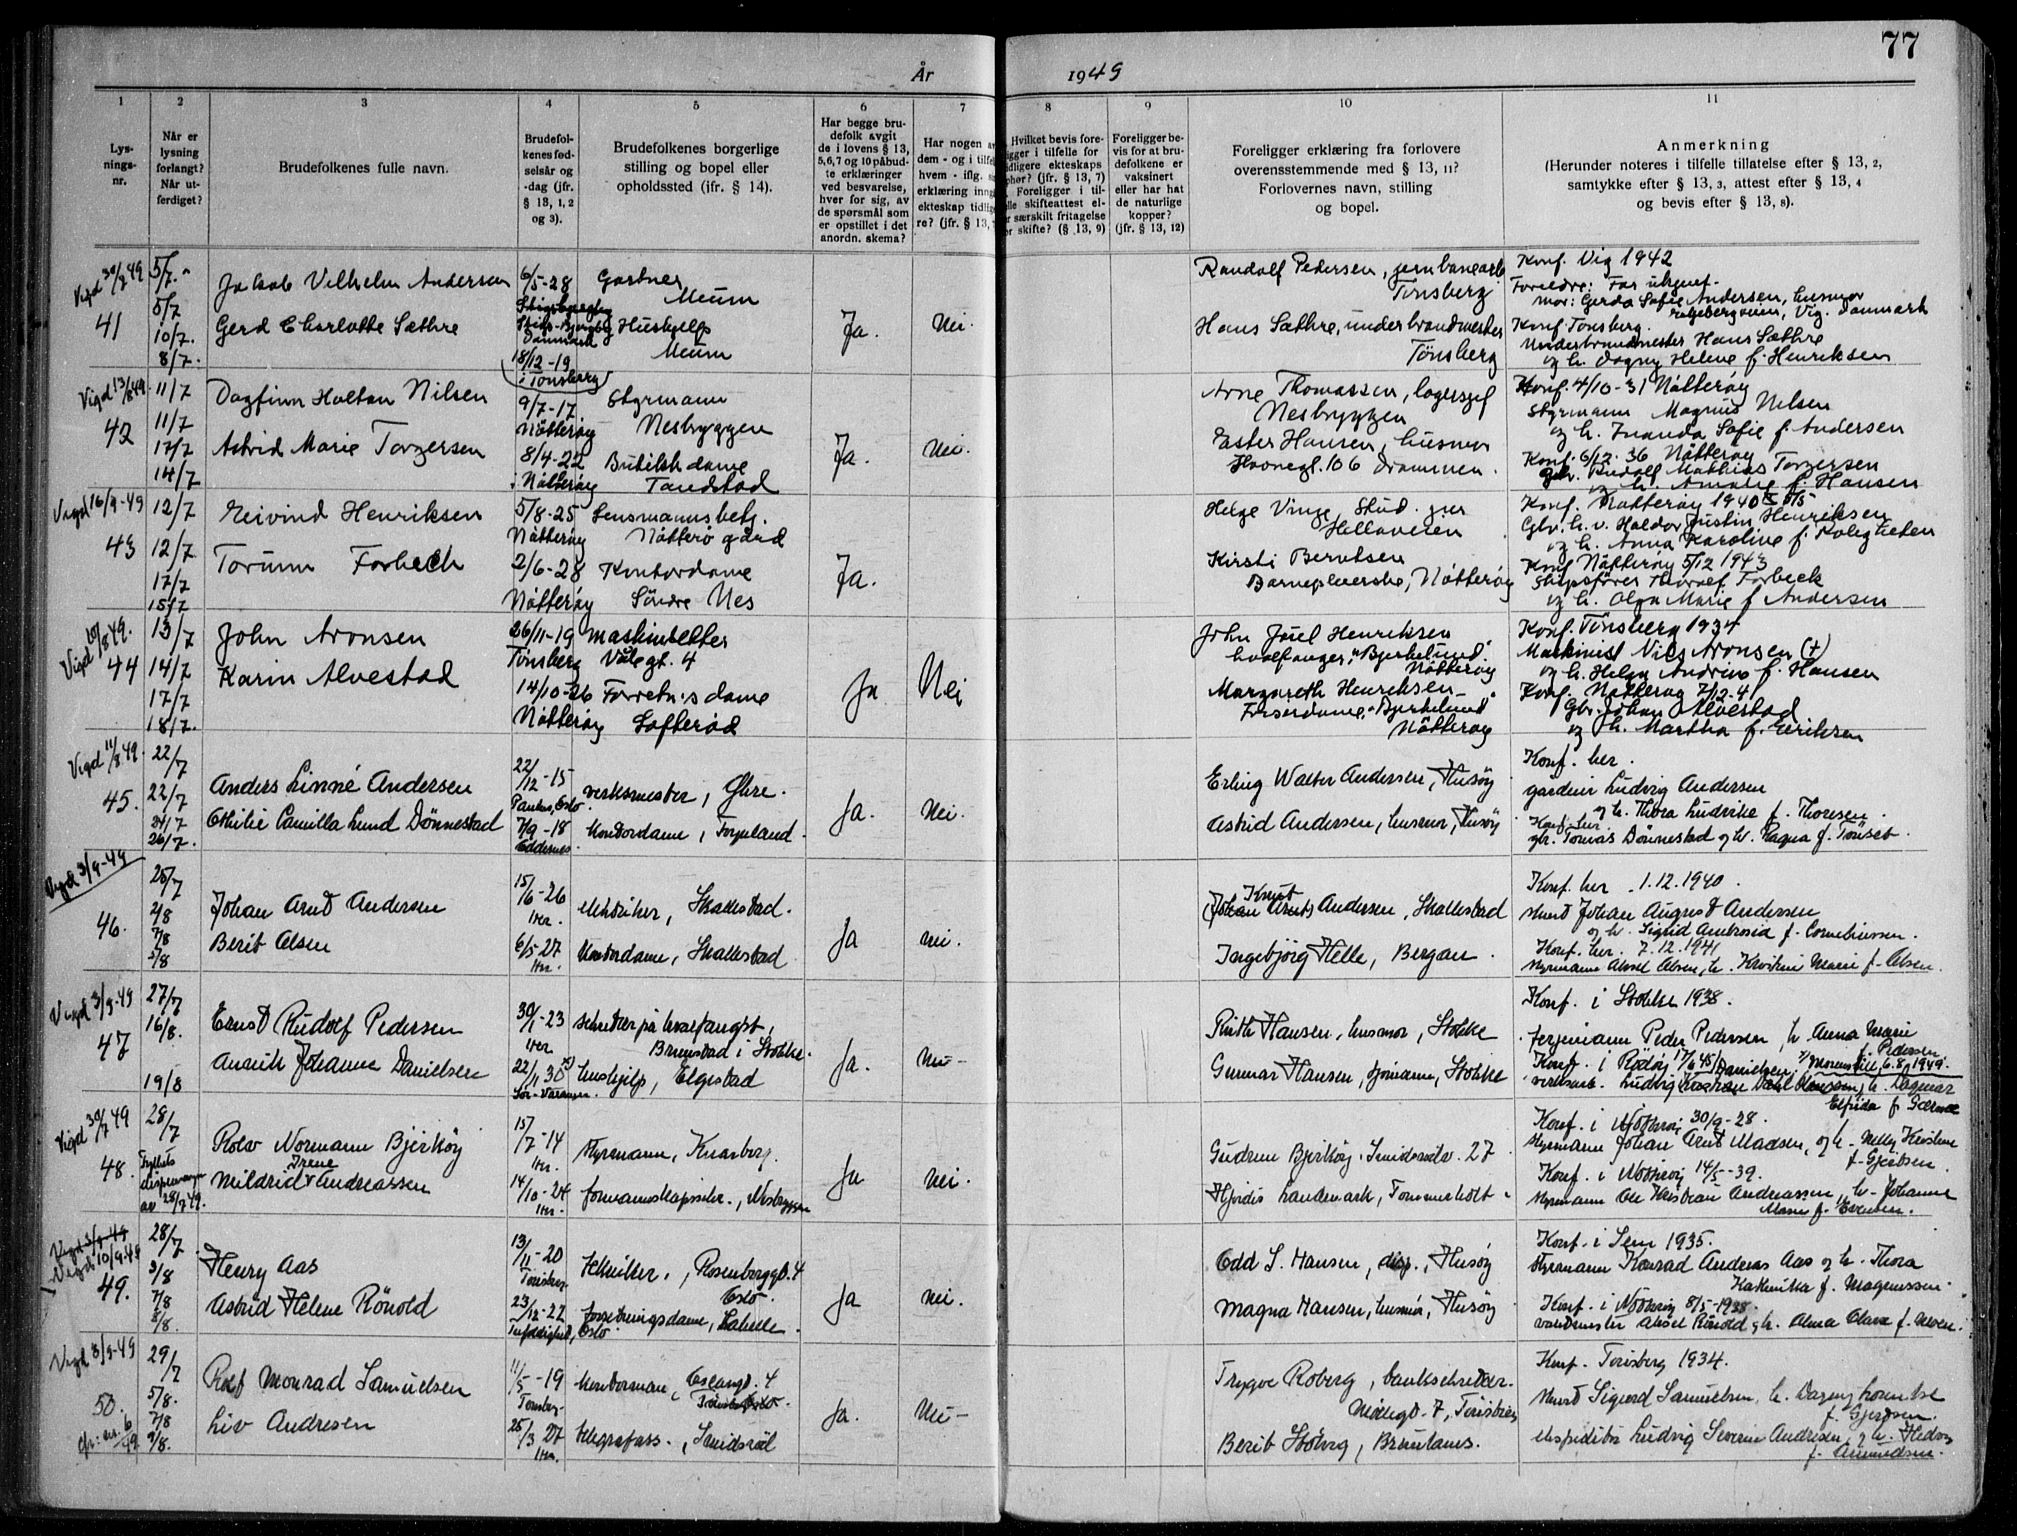 77
År 1949
1
2
3
4
5
6
7
8
9
10
11
Lys-
nings-
nr.
Når er
lysning
forlangt?
Når ut-
ferdiget?
Brudefolkenes fulle navn.
Brudefol-
kenes fød-
selsår og
-dag (jfr.
§ 13, 1, 2
og 3).
Brudefolkenes borgerlige
stilling og bopel eller
opholdssted (ifr. § 14).
Har begge bru-
defolk avgit
de i lovens § 13,
5,6,7 og 10 påbud-
te erklæringer
ved besvarelse,
hver for sig, av
de spørsmål som
er opstillet i det
anordn. skema?
Har nogen a
dem - og i tilfe
hvem - iflg.
erklæring inng
ekteskap tidlig
re? (jfr. § 13,
Hvilket bevis fore-
igger i tilfelle for
idligere ekteskaps
phør? (jfr. § 13, 7)
Foreligger i til-
lle skifteattest el-
r særskilt fritagelse
or skifte? (§ 13, 9)
Foreligger be-
vis for at bru-
defolkene er
vaksinert
eller har hat
de naturlige
kopper?
(jfr. § 13, 12)
Foreligger erklæring fra forlovere
overensstemmende med § 13, 11?
Forlovernes navn, stilling
og bopel.
Anmerkning
(Herunder noteres i tilfelle tillatelse efter § 13, 2,
samtykke efter § 13, 3, attest efter § 13, 4
og bevis efter § 13, 8).
Vigd 30/7 49
41
5/7
5/7
10/7.
8/7.
Jakob Vilhelm Andersen
Gerd Charlotte Sæthre
6/5-28
Stigs-Bjergby
Danmark
18/12-19
i Tønsberg
Gartner
Meum
Hushjelp
Meum
Ja.
Nei.
Randolf Pedersen, jernbanearb.
Tønsberg
Hans Sæthre, underbrandmester
Tønsberg
Konf. Vig 1942
Foreldre: Far ukjent.
Mor: Gerda Sofie Andersen, husmor
Vig. Danmark
Konf. Tønsberg.
Underbrandmester Hans Sæthre
og h. Dagny Helene f. Henriksen
Vigd 13/8 49.
42
11/7
11/7
17/7
14/7
Dagfinn Holtan Nilsen
Astrid Marie Torgersen
9/7-17.
Nøtterøy
8/4-22
i Nøtterøy
Styrmann
Nesbryggen
Butikkdame
Tandstad
Ja.
Nei.
Arne Thomassen, lagersjef
Nesbryggen
Ester Hansen, husmor
Havnegt. 106 Drammen.
Konf. 4/10-31 Nøtterøy
Styrmann Magnus Nilsen
og h. Inanda Sofie f. Andersen
Konf. 6/12-36 Nøtterøy
Gbr. Rudolf Mathias Torgersen
og h. Amalie f. Hansen
Vigd 16/9-49
43
12/7
12/7
17/7
15/7
Eivind Henriksen
Torunn Forbech
5/8-25
Nøtterøy
2/6-28
Nøtterøy
Lensmannsbetj.
Nøtterø gård
Kontordame
Søndre Nes
Ja.
Helge Vinge, Stud. jur
Hellaveien
Kirsti Berntsen
Barnepleierske, Nøtterøy
Konf. Nøtterøy 1940
Gbr. h. v. Haldor Justin Henriksen
og h. Anna Karoline f. Roligheten
Konf. Nøtterøy 5/12 1943
Skipsfører Thoralf Forbeck
og h. Olga Marie f. Andersen
Vigd 10/8 49.
44
13/7
14/7
17/7
18/7.
John Aronsen
Karin Alvestad
26/11-19
Tønsberg
14/10-26
Nøtterøy
Maskinsetter
Vålegt. 4
Forretn.s dame
Lofterød
Ja
Nei
John Joel Henriksen
hvalfanger, "Bjerkelund"
Nøtterøy
Margareth Henriksen
Frisørdame, "Bjerkelund"
Nøtterøy
Konf. Tønsberg 1934
Maskinist Nils Aronsen (+)
og h. Helga Andrine f. Hansen
Konf. Nøtterøy 7/12-41
Gbr. Johan Alvestad
og h. Martha f. Eriksen
Vigd 11/8 49.
45.
22/7
22/7
24/7
26/7.
Anders Linné Andersen
Othilie Camilla Lund Dønnestad
22/12-15
Paulus, Oslo
7/9-18
Eddernes
verksmester, Øhre.
Kontordame, Føynland.
Ja.
Nei.
Erling Walter Andersen, Husøy
Astrid Andersen, husmor, Husøy
Konf. her.
gårdeier Ludvig Andersen
og h. Thora Ludvike f. Thoresen.
Konf. her
gbr. Tomas Dønnestad og h. Ragna f. Tönset.
Vigd 3/9-49
46.
25/7
4/8
7/8
5/8
Johan Arnt Andersen
Berit Olsen
15/6-26
Her.
6/5-27
Her.
elektriker, Skallestad.
Kontordame, Skallestad
Ja
Nei.
Knut
(Johan Arnt) Andersen, Skallestad
Ingebjørg Helle, Bergan.
Konf. her 1.12.1940.
Johan August Andersen
og h. Sigrid Ambrosia f. Corneliussen.
Konf. her. 7.12.1941
styrmann Aksel Olsen, h. Kristine Marie f. Olsen.
Vigd 3/9-49
47
27/7
16/8.
19/8
Ernst Rudolf Pedersen
Annik Johanne Danielsen
30/1-23
Her
22/11 30 x)
Sør-Varanger.
sekretær på hvalfangst,
Brunstad i Stokke.
hushjelp, Elgestad
Ja.
Nei-
Ruth Hansen, husmor, Stokke
Gunnar Hansen, sjømann, Stokke
Konf. i Stokke 1938.
fergemann Peder Pedersen, h. Anna Marie
f. Pedersen.
Konf. i Rødøy 17/6 45
6.8.1949.
verksarb. Ludvig Danielsen, h. Dagmar
Elfrida f.
Vigd 30/7 49
48.
28/7
28/7 49.
Rolv Normann Bjerkøy
Irene
Mildrid Andreassen
15/7-14
Her.
14/10-24
Her.
styrmann, Knarberg.
formannskapssekr., Nesbryggen
Ja
Nei.
Gudrun Bjerkøy, Smidsrødv. 27
Hjørdis Landmark, Tømmerholt
Konf. i Nøtterøy 30/9-28.
styrmann Johan Arnt Madsen, og h. Nelly Kristine
f. Gjertsen.
Konf. i Nøtterøy 14/5-39.
styrmann Ole Kristian Andreassen, h. Johanne
Marie f. Evensen.
Vigd 3/9-49
Vigd 10/9-49
49.
28/7
3/8
7/8
8/8.
Henry Aas
Astrid Helene Rönold
13/11-20
Tønsberg
23/12-22
Tekniker, Rosenborggt. 4
Oslo.
forretningsdame, Labelle
Ja
Nei.
Odd S. Hansen, disp., Husøy
Magna Hansen, husmor, Husøy
Konf. i Sem 1935.
Styrmann Konrad Andreas Aas og h. Thora
Kathinka f. Magnussen.
Konf. i Nøtterøy 8/5-1938.
vaktmester Aksel Rönold, h. Alma Olava f. Olsen.
Vigd 3/9-49
50.
cfr: nr. 6/49
29/7
5/8.
7/8
9/8.
Rolf Monrad Samuelsen
Liv Andresen
11/5-19
Tønsberg
25/3 27
Her.
Kontormann, Oscarsgt. 4
telegrafass., Smidsrød
Ja.
Nei-
Trygve Roberg, banksekretær
Møllegt. 7, Tønsberg
Berit Stolvig, Bruntanes.
Konf. Tønsberg 1934.
Sigurd Samuelsen, h. Dagny Lorentse
f. Gjertsen.
ekspeditør Ludvig Severin Andresen, og h. Hedvig
f. Amundsen.